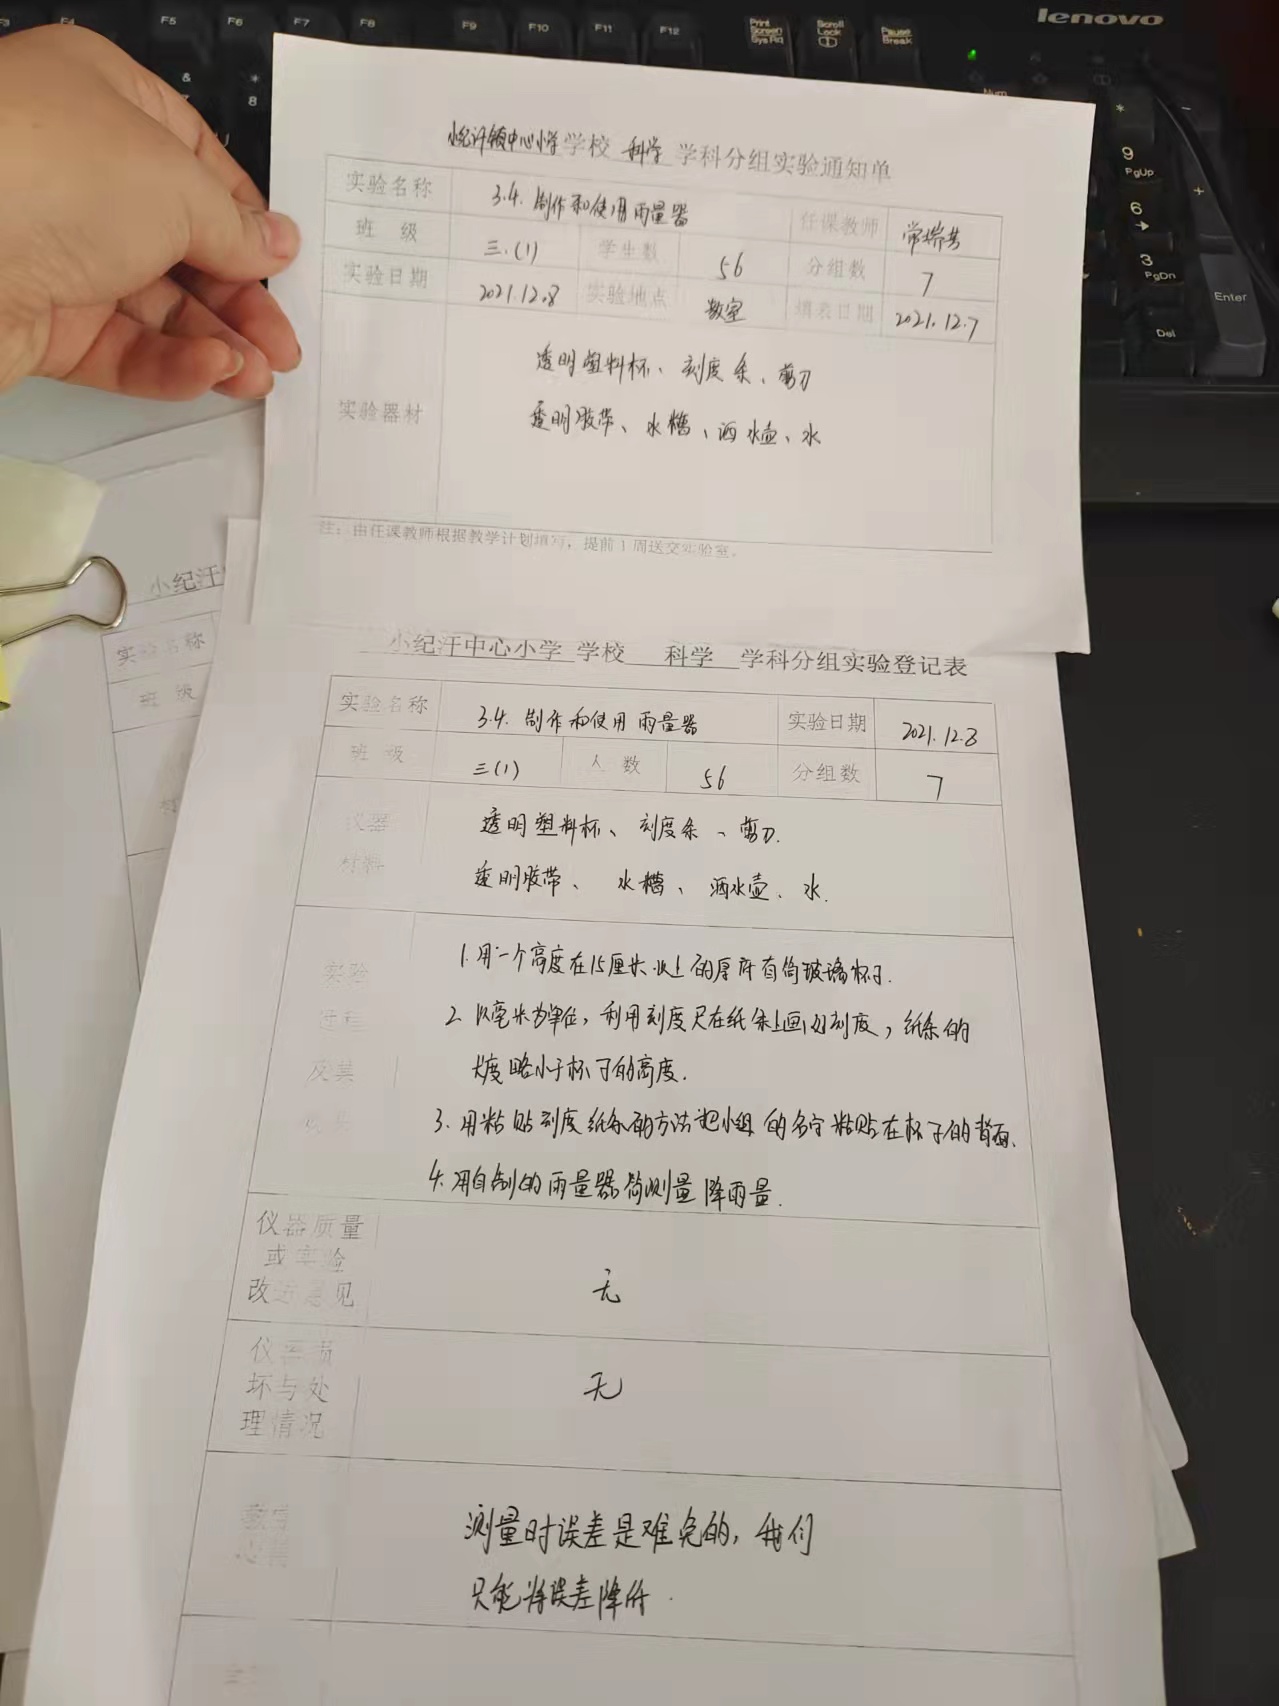 lenovo
F5 F6 F7 F8 F9 F10 F11 F12
Print Screen SysRq
Scroll Lock
Pause Break
Num
&
*
8
*
9
PgUp
+
6
3
PgDn
Enter
Del
小纪汗镇中心小学 学校 科学 学科分组实验通知单
实验名称 3.4. 制作和使用雨量器 任课教师
班 级 三.(1) 学生数 56 分组数 7
实验日期 2021.12.8 实验地点 教室 填表日期 2021.12.7
透明塑料杯、刻度条、剪刀
实验器材
透明胶带、水槽、洒水壶、水
注：由任课教师根据教学计划填写，提前1周送交实验室。
小纪汗
实验名称
班 级
小纪汗中心小学 学校 科学 学科分组实验登记表
实验名称 3.4. 制作和使用雨量器 实验日期 2021.12.8
班 级 三(1) 人 数 56 分组数 7
仪器 透明塑料杯、刻度条、剪刀.
材料 透明胶带、水槽、洒水壶、水.
实验 1.用一个高度在15厘米以上的厚度直筒玻璃杯子.
过程 2.以毫米为单位，利用刻度尺在纸条上画出刻度，纸条的
及其 长度略小于杯子的高度.
3.用粘贴刻度纸条的方法把小组的名字粘贴在杯子的背面.
4.用自制的雨量器简测量降雨量.
仪器质量
或实验
改进意见 无
仪器损
坏与处 无
理情况
测量时误差是难免的，我们
只能将误差降低.